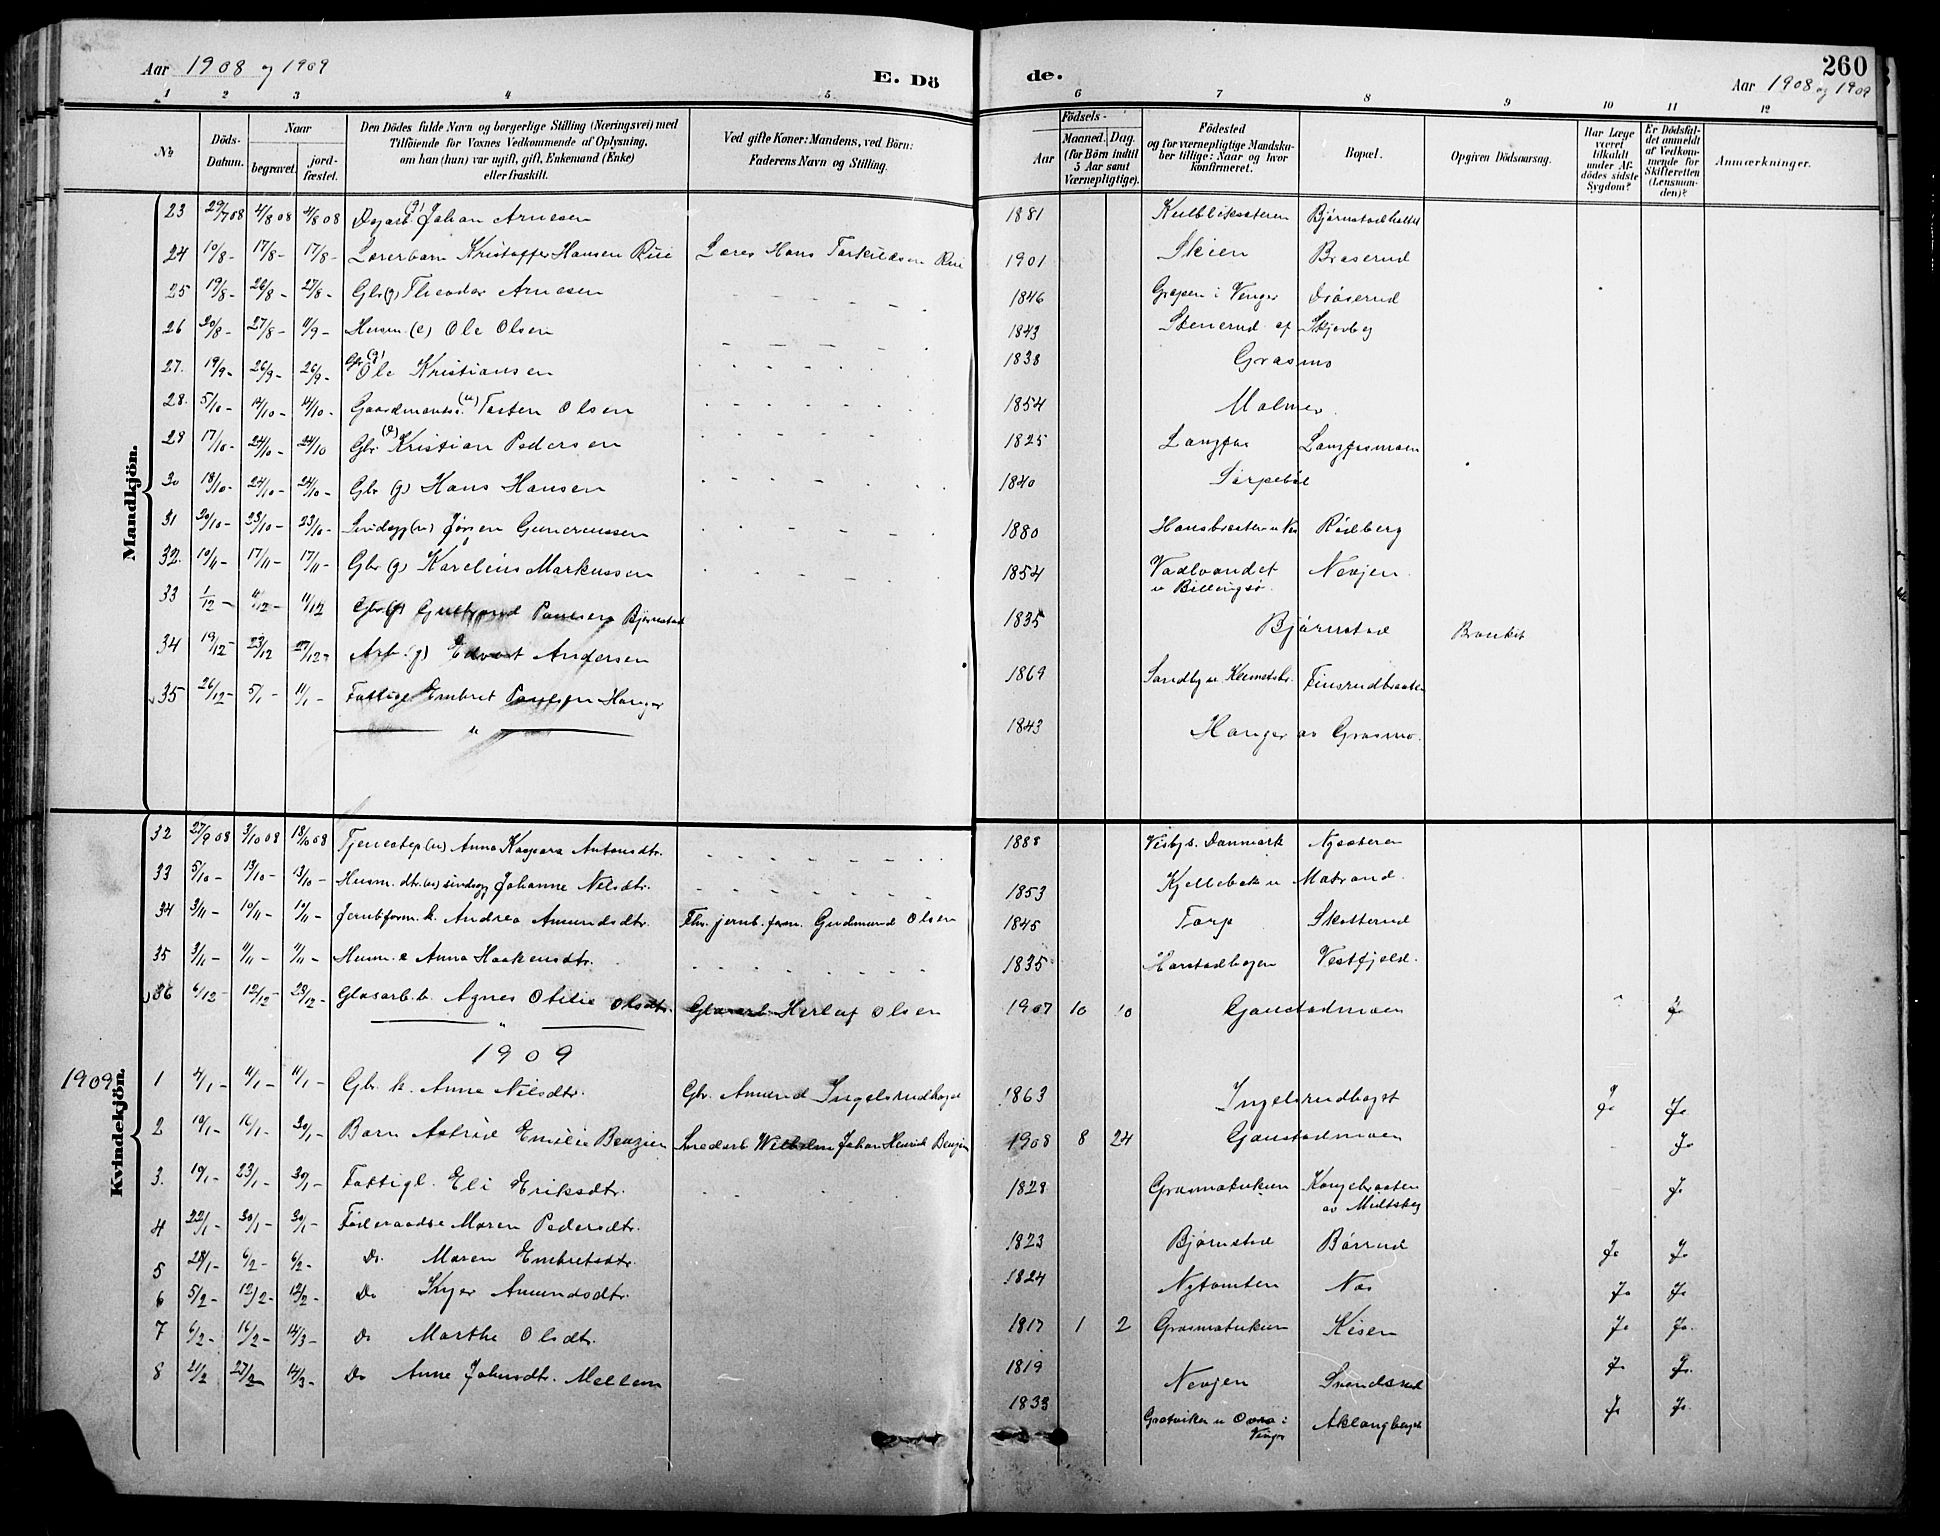 Aar 1908 og 1909
E. Dö de.
260
Aar 1908 og 1909
1 2 3 4 5 6 7 8 9 10 11 12
No
Döds-Datum.
Naar
begravet.
jord-fæstet.
Den Dödes fulde Navn og borgerlige Stilling (Næringsvei) med
Tilföiende for Voxnes Vedkommende af Oplysning,
om han (hun) var ugift, gift, Enkemand (Enke)
eller fraskilt.
Ved gifte Koner: Mandens, ved Börn:
Faderens Navn og Stilling.
Födsels-
Aar
Maaned. Dag.
(for Börn indtil
5 Aar samt
Værnepligtige).
Födested
og for værnepligtige Mandska-
ber tillige: Naar og hvor
konfirmeret.
Bopæl.
Opgiven Dödsaarsag.
Har Læge
været
tilkaldt
under Af-
dödes sidste
Sygdom?
Er Dödsfal-
det anmeldt
af Vedkom-
mende for
Skifteretten
(Lensman-
den)?
Anmærkninger.
Mandkjön.
23 29/7 08 4/8 08 4/8 08 Dagarb. (g) Johan Arnesen 1881 Kulbliksæteren Bjørnstadholtet
24 10/8 - 17/8 - 17/8 - Lærerbarn Kristoffer Hansen Riie Læres Hans Torkildsen Riie 1901 Skien Braserud
25 19/8 - 26/8 - 27/8 - Gbr (g) Theodor Arnesen 1846 Gropen i Vinger
26 20/8 - 27/8 - 11/9 - Husm. (e) Ole Olsen 1843 Stenerud af Skjerberg
27. 19/9 - 26/9 - 26/9 - Gbr (g) Ole Kristiansen 1838 Grasmo
28. 5/10 - 14/10 - 14/10 - Gaardmands. (u) Torsten Olsen 1854 Malmer
29 17/10 - 24/10 - 24/10 Gbr. (e) Kristian Pedersen 1825 Langfos Langfosmoen
30 18/10 - 24/10 - 24/10 - Gbr (g) Hans Hansen 1840 Sørpebøl
31 20/10 - 23/10 - 23/10 - Sindssyg (u) Jørgen Gunerussen 1880 Rødberg
32. 10/11 - 17/11 - 17/11 - Gbr (g) Karelius Markussen 1854 Vadlvandet u Billingsø. Nevjen
33 1/12 - 11/12 - 11/12 Gbr (g) Paulsen Bjørnstad 1835 Bjørnstad
34 19/12 - 23/12 27/12 - Arb. (g) Edvart Andersen 1869 Finsrudbraaten
35 26/12 - 5/1 - 11/1 - Fattigl. Embret Paulsen Hanger 1843 Hanger av Grasmo.
Kvindekjön.
32 27/9 08 3/10 08 18/10 08 Tjenestep (u) Anna Kaspara Antonsdtr. 1888 Visby s. Danmark Nysæteren
33 5/10 - 13/10 - 13/10 - Husm. dtr. (u) sindssyg Johanne Nilsdtr. 1853 Kjellebek u Matrand
34 3/11 - 10/11 - 10/11 - Jernb.form. k. Andrea Amundsdtr. Fhv. jernb. form. Gudmund Olsen 1845 Torp Skotterud
35 3/11 - 11/11 - 11/11 - Husm. e Anna Haakensdtr. 1835 Harstadhagen Vestfjeld.
36 6/12 - 12/12 - 29/12 - Glasarb. b. Agnes Otilie Olsdtr. Glasarb Herlaf Olsen 1907 10 10 Gaustadmoen Ja
1909
1909 1 4/1 - 11/1 - 11/1 - Gbr. k. Anne Nilsdtr. Gbr. Amund Ingelsrudhagst 1863 Ingelsrudhagst Ja Ja
2 10/1 - 16/1 - 30/1 - Barn Astrid Emilie Benzien Snedarb Wilhelm Johan Henrik Benzien 1908 8 24 Gaustadmoen Ja
3. 19/1 - 23/1 - 30/1 - Fattigl. Eli Eriksdtr. 1828 Grasmatukun Kongebraaten av Midtskog Ja
4 22/1 - 30/1 - 30/1 - Føderaadse Maren Pedersdtr. 1823 Bjørnstad Børrud Ja Ja
5 28/1 - 6/2 - 6/2 - Do Maren Embretsdtr. 1824 Nytomten Nas Ja Ja
6 5/2 - 12/2 - 12/2 - Do Amundsdtr. 1817 1 2 Grasmatukun Kisen Ja Ja.
7 6/2 - 16/2 - 14/3 - Do Marthe Olsdtr. 1819 Nevjen Svendsrud Ja Ja.
8 21/2 27/2 - 14/3 - Do Anne Johnsdtr. Mellem 1833 Vinger Ja Ja